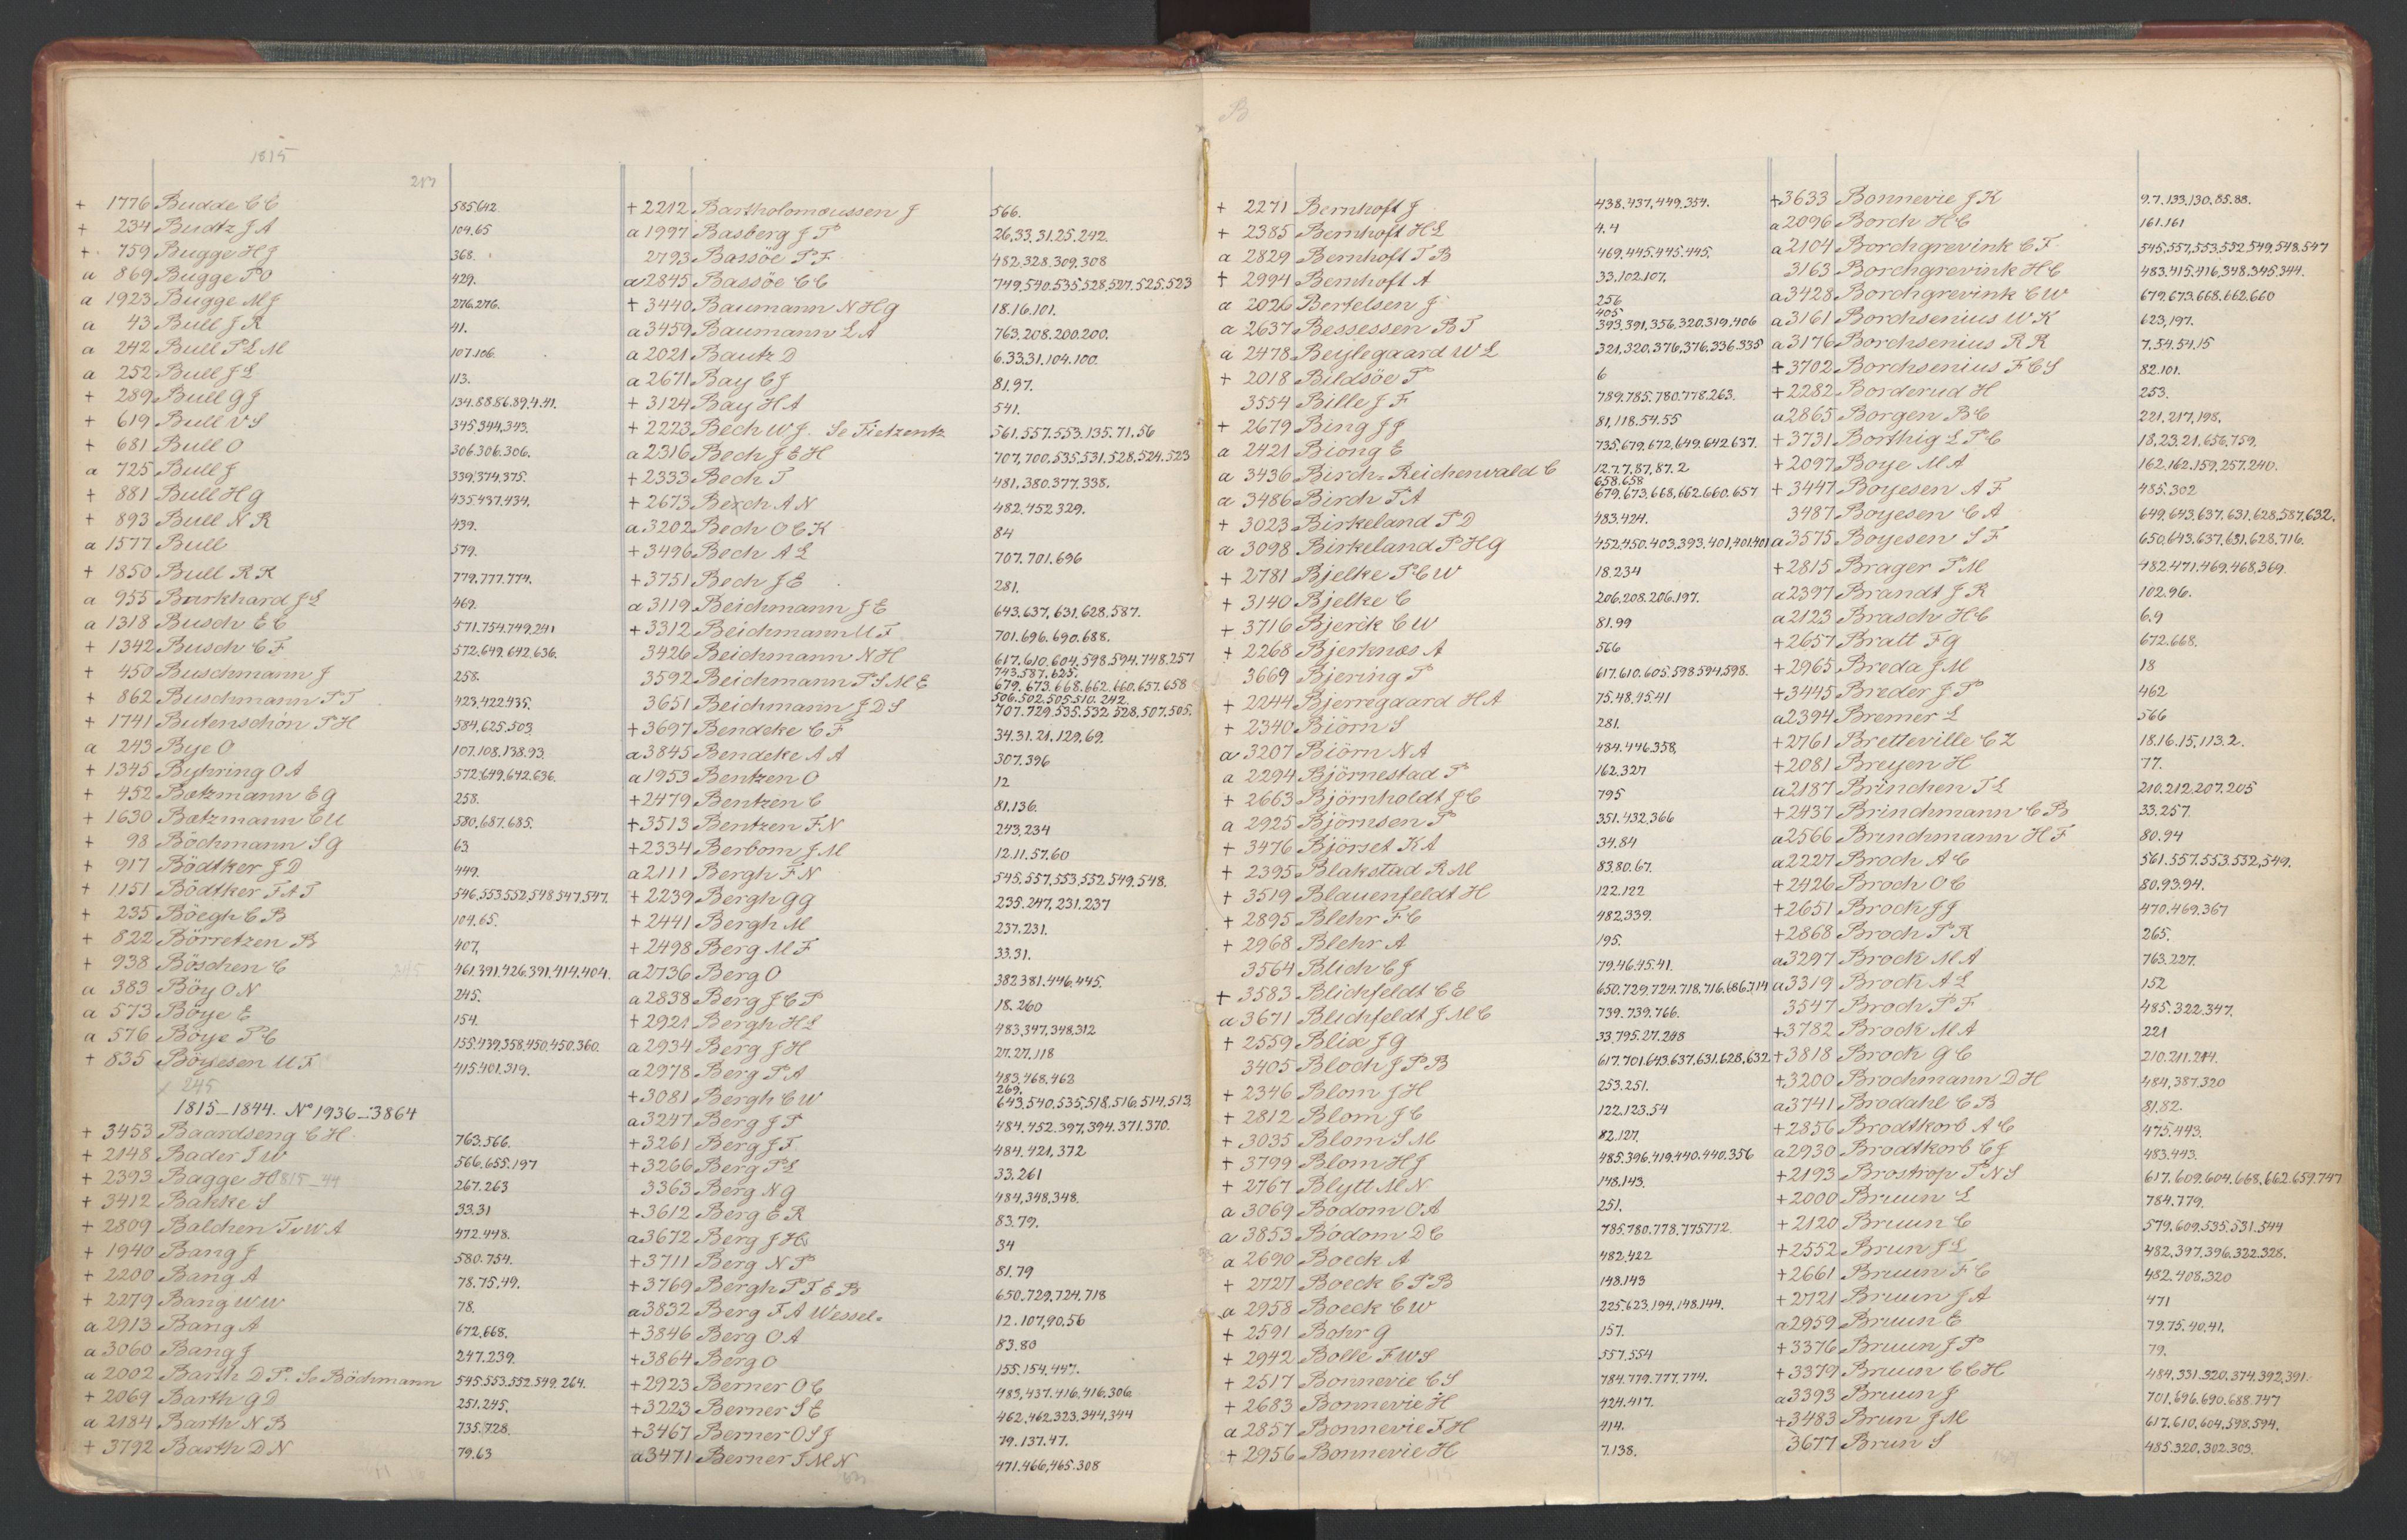 1815
213
+ 1776 Budde C C 585.642.
+ 234 Budtz J A 104.65
+ 759 Bugge H J 368.
a 869 Bugge P O 429.
a 1923 Bugge M J 276.276.
a 43 Bull J R 41.
a 242 Bull P L M 107.106.
a 252 Bull J L 113.
+ 289 Bull G J 134.88.86.89.4.41.
+ 619 Bull V S 345.344.343.
+ 681 Bull O 306.306.306.
a 725 Bull J 339.374.375.
+ 881 Bull H G 435.437.434.
+ 893 Bull N R 439.
a 1577 Bull 579.
+ 1850 Bull R K 779.777.774.
a 955 Burkhard J L 469.
a 1318 Busch E C 571.754.749.241
+ 1342 Busch C F 572.649.642.636.
+ 450 Buschmann J 258.
+ 862 Buschmann P T 423.422.435.
+ 1741 Butenschön P H 584.625.503
a 243 Bye O 107.108.138.93.
+ 1345 Byhring O A 572.649.642.636.
+ 452 Bætzmann E G 258.
+ 1630 Bætzmann C U 580.687.685.
+ 98 Böchmann S G 63.
+ 917 Bödtker J D 449.
+ 1151 Bödtker F A T 546.553.552.548.547.547.
+ 235 Böegh C B 104.65.
+ 822 Börretzen B 407.
+ 938 Böschen C 461.391.426.391.414.404.
a 383 Böy O N 245.
a 573 Böye E 154.
a 576 Böye P C 155.439.358.450.450.360.
+ 835 Böyesen U F 415.401.319.
245
1815_1844. No 1936_3864
+ 3453 Baardseng C H. 763.566.
+ 2148 Bader J W 566.655.197
+ 2393 Bagge H 1815_44 267.263
+ 3412 Bakke S 33.31
+ 2809 Balchen T v W A 472.448.
+ 1940 Bang J 580.754.
+ 2200 Bang A 78.75.49.
+ 2279 Bang W W 78.
a 2913 Bang A 672.668.
a 3060 Bang J 247.239.
a 2002 Barth D P. Se Böchmann 545.553.552.549.264.
+ 2069 Barth G D 251.245.
a 2184 Barth N B 735.728.
+ 3792 Barth D N 79.63
+ 2212 Bartholomæussen J 566.
a 1997 Basberg J P 26.33.31.25.242.
2793 Bassöe P F 482.328.309.308
a 2845 Bassöe C C 749.540.535.528.527.525.523
+ 3440 Baumann N H G 18.16.101.
a 3459 Baumann L A 763.208.200.200.
a 2021 Bautz D 6.33.31.104.100.
a 2671 Bay C J 81.97.
+ 3124 Bay H A 541.
+ 2223 Bech W J. Se Tietzentz 561.557.553.135.71.56
a 2316 Bech J E H 707.700.535.531.528.524.523
+ 2333 Bech T 481.380.377.338.
+ 2673 Bech A N 482.452.329.
a 3202 Bech O C K 84
+ 3496 Bech A L 707.701.696
+ 3751 Bech J E 281.
a 3119 Beichmann J E 643.637.631.628.587.
+ 3312 Beichmann U F. 701.696.690.688.
3426 Beichmann N H 617.610.604.598.594.748.257
743.587.625.
3592 Beichmann P S M E 679.673.668.662.660.657.658
506.502.505.510.242.
3651 Beichmann J D S 707.729.535.532.528.507.505.
+ 3697 Bendeke C F 34.31.21.129.69.
a 3845 Bendeke A A 307.396
a 1953 Bentzen O 12
+ 2479 Bentzen C 81.136.
+ 3513 Bentzen F N 243.234
+ 2334 Berbom J M 12.11.57.60
a 2111 Bergh F N 545.557.553.532.549.548.
+ 2239 Bergh G G 235.247.231.237
+ 2441 Bergh M 237.231.
+ 2498 Berg M F 33.31.
a 2736 Berg O 382.381.446.445.
a 2838 Berg J C P 18.260
+ 2921 Bergh H L 483.347.348.312
a 2934 Berg J H 27.27.118
a 2978 Berg P A 483.468.462
269.
+ 3081 Bergh C W 643.540.535.518.516.514.513.
a 3247 Berg J P 484.452.397.394.371.370.
+ 3261 Berg J F 484.421.372
+ 3266 Berg P L 33.261
3363 Berg N G 484.348.348.
+ 3612 Berg E R 83.79.
a 3672 Berg J H 34
+ 3711 Berg N P 81.79
+ 3769 Bergh P T E B 650.729.724.718
a 3832 Berg F A Wessel= 12.107.90.56
+ 3846 Berg O A 83.80
+ 3864 Berg O 155.154.447.
+ 2923 Berner O C 483.437.416.416.306.
+ 3223 Berner S E 462.462.323.344.344
+ 3467 Berner O S J 79.137.47.
a 3471 Berner J M N 471.466.465.308
B
+ 2271 Bernhoft J 438.437.449.354.
+ 2385 Bernhoft H L 4.4
a 2829 Bernhoft T B 469.445.445.445.
+ 2994 Bernhoft A 33.102.107.
a 2026 Bertelsen J 256
405
a 2637 Bessessen B T 393.391.356.320.319.406
a 2478 Beylegaard W L 321.320.376.376.336.335
+ 2018 Bildsöe P 6
3554 Bille J F 789.785.780.778.263.
+ 2679 Bing J J 81.118.54.55
a 2421 Biong E 735.679.672.649.642.637.
a 3436 Birch=Reichenwald C 12.7.7.87.87.2
658.658
a 3486 Birch P A 679.673.668.662.660.657
+ 3023 Birkeland P D 483.424.
a 3098 Birkeland P H G 452.450.403.393.401.401.401
+ 2781 Bjelke P C W 18.234
+ 3140 Bjelke C 206.208.206.197.
+ 3716 Bjerck C W 81.99
+ 2268 Bjerknæs A 566
3669 Bjering P 617.610.605.598.594.598.
+ 2244 Bjerregaard H A 75.48.45.41
+ 2340 Biörn S 281.
a 3207 Biörn N A 484.446.358
a 2294 Björnestad P 162.327
+ 2663 Björnholdt J C 795
a 2925 Björnsen P 351.432.366
+ 3476 Björset K A 34.84
+ 2395 Blakstad R M 83.80.67.
+ 3519 Blauenfeldt H 122.122
+ 2895 Blehr F C 482.339.
+ 2968 Blehr A 195.
3564 Blich C J 79.46.45.41.
+ 3583 Blichfeldt C E 650.729.724.718.716.686.714
a 3671 Blichfeldt J M C 739.739.766.
+ 2559 Blix J G 33.795.27.248
3405 Bloch J P B 617.701.643.637.631.628.632
+ 2346 Blom J H 253.251.
+ 2812 Blom J C 122.123.54
+ 3035 Blom S M 82.127.
+ 3799 Blom H J 485.396.419.440.440.356
+ 2767 Blytt M N 148.143.
a 3069 Bodom O A 251.
a 3853 Bodom D C 785.780.778.775.772.
a 2690 Boeck A 482.422
+ 2727 Boeck C P B 148.143
a 2958 Boeck C W 225.623.194.148.144.
+ 2591 Bohr G 157.
+ 2942 Bolle F W S 557.554
+ 2517 Bonnevie C S 784.779.777.774.
+ 2683 Bonnevie H 424.417.
a 2857 Bonnevie F H 414.
+ 2956 Bonnevie H 7.138.
+ 3633 Bonnevie J K 97.133.130.85.88.
a 2096 Borch H C 161.161
a 2104 Borchgrevink C F 545.557.553.552.549.548.547
3163 Borchgrevink H C 483.415.416.348.345.344.
a 3428 Borchgrevink C W 679.673.668.662.660
a 3161 Borchsenius W K 623.197.
a 3176 Borchsenius R R 7.54.54.15
+ 3702 Borchsenius F C S 82.101.
+ 2282 Borderud H 253.
a 2865 Borgen B C 221.217.198.
+ 3731 Borthig L P C 18.23.21.656.759.
+ 2097 Boye M A 162.162.159.257.240.
+ 3447 Boyesen A F 485.302
3487 Boyesen C A 649.643.637.631.628.587.632.
a 3575 Boyesen S F 650.643.637.631.628.716.
+ 2815 Brager P M 482.471.469.468.369.
a 2397 Brandt J R 102.96.
a 2123 Brasch H C 6.9
+ 2657 Bratt F G 672.668.
+ 2965 Breda J M 18
+ 3445 Breder J P 462
a 2394 Bremer L 566
+ 2761 Bretteville C Z 18.16.15.113.2.
+ 2081 Breyen H 77.
a 2187 Brinchen T L 210.212.207.205
+ 2437 Brinchmann C B 33.257.
a 2566 Brinchmann H F 80.94
a 2227 Broch A C 561.557.553.532.549.
+ 2426 Broch O C 80.93.94.
+ 2651 Brock J J 470.469.367
+ 2868 Broch P K 265.
a 3297 Brock M A 763.227.
a 3319 Brock A L 152
3547 Broch P F 485.322.347.
+ 3782 Brock M A 221
+ 3818 Brock G C 210.211.214.
+ 3200 Brochmann D H 484.387.320
a 3741 Brodahl C B 81.82.
+ 2856 Brodtkorb A C 475.443.
a 2930 Brodtkorb C J 483.443.
+ 2193 Brostrop P N S 617.609.604.668.662.659.747
+ 2000 Bruun L 784.779.
+ 2120 Bruun C 579.609.535.531.544
+ 2552 Brun J L 482.397.396.322.328.
+ 2661 Bruun F C 482.408.320
+ 2721 Bruun J A 471
a 2959 Bruun E 79.75.40.41.
+ 3376 Bruun J P 79.
+ 3379 Bruun C C H 484.331.320.374.392.391.
a 3393 Bruun J 701.696.690.688.747
+ 3483 Brun J M 617.610.604.598.594.
3677 Brun S 485.320.302.303.